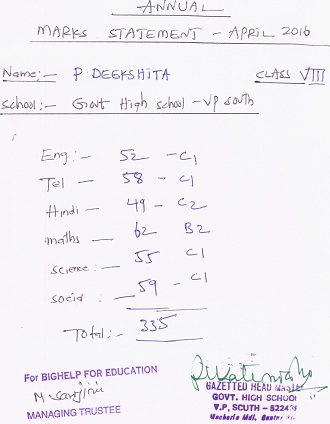 ANNUAL
MARKS STATEMENT - APRIL 2016
Name:- P. DEEKSHITA CLASS VIII
School:- Govt High school - VP South
Eng:- 52 - C1
Tel - 58 - C1
Hindi - 49 - C2
maths - 62 B2
science:- 55 C1
social - 59 - C1
Total:- 335
For BIGHELP FOR EDUCATION
MANAGING TRUSTEE
GAZETTED HEAD MASTER
GOVT. HIGH SCHOOL
V.P, SOUTH - 522438